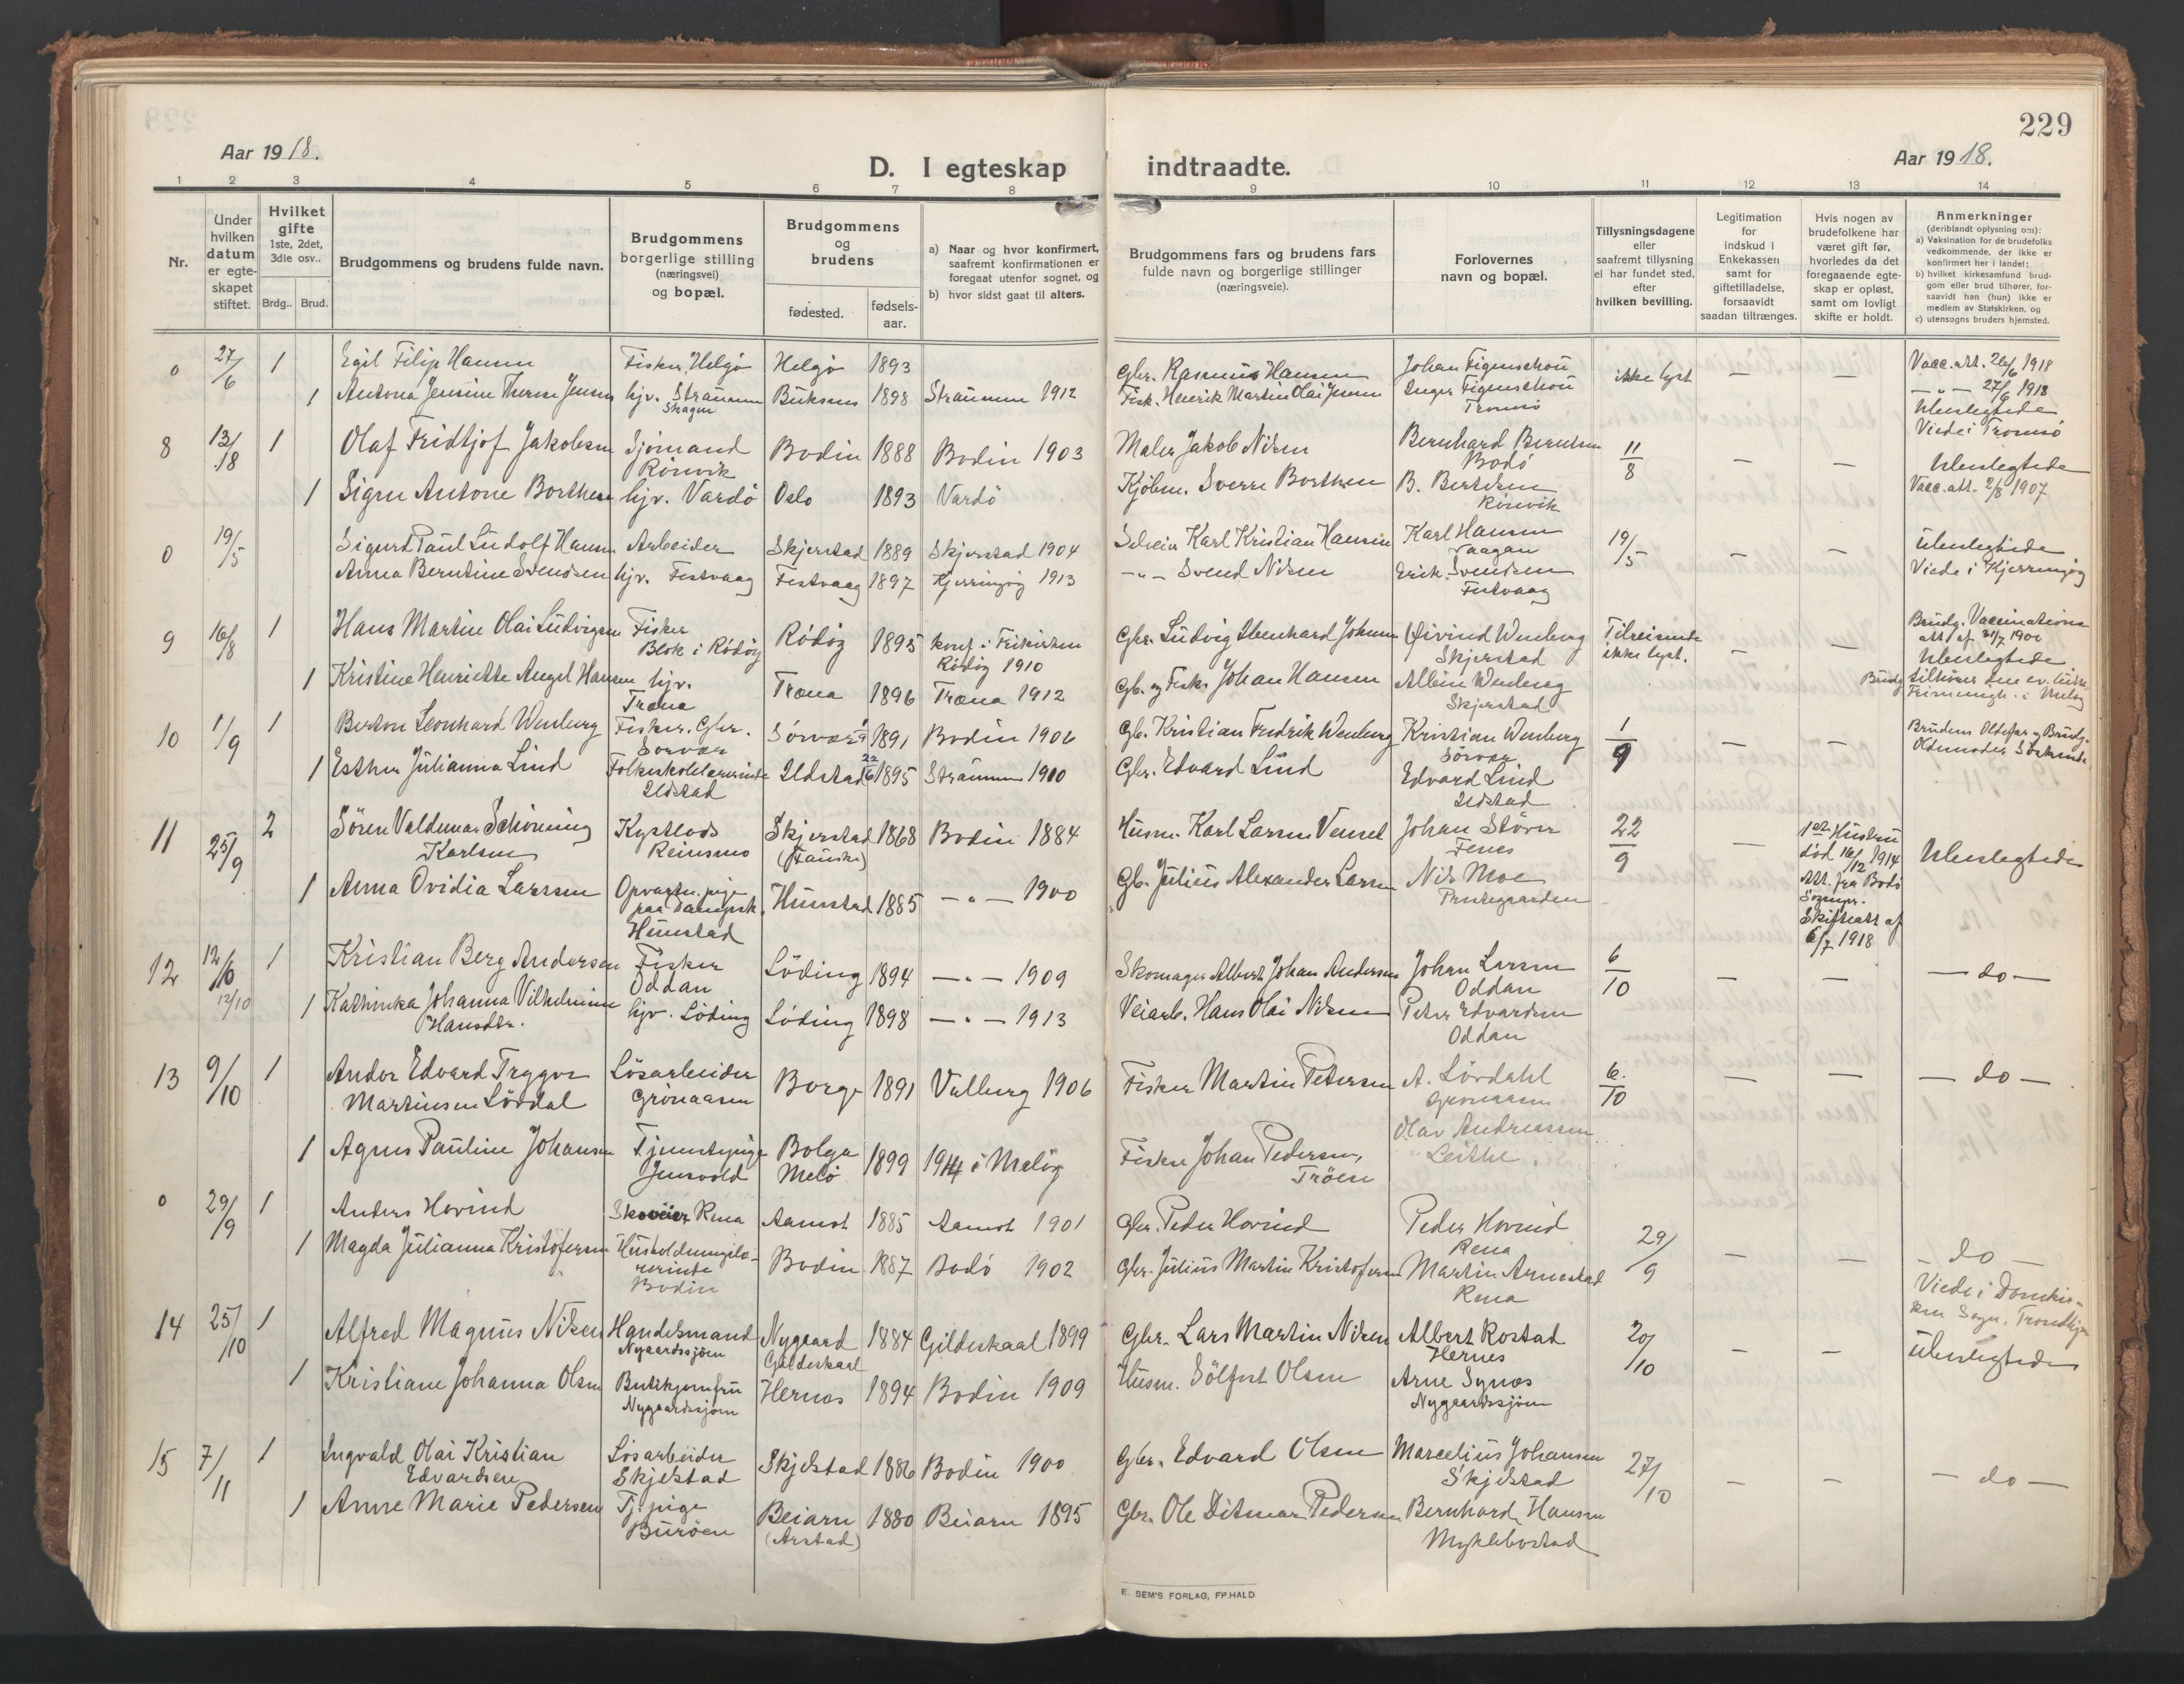 229
Aar 1918.
D. I egteskap indtraadte.
Aar 1918.
1 2 3 4 5 6 7 8 9 10 11 12 13 14
Nr.
Under hvilken datum er egteskapet stiftet.
Hvilket gifte 1ste, 2det, 3die osv..
Brdg.. Brud.
Brudgommens og brudens fulde navn.
Brudgommens borgerlige stilling (næringsvei) og bopæl.
Brudgommens og brudens
fødested. fødselsaar.
a) Naar og hvor konfirmert, saafremt konfirmationen er foregaat utenfor sognet, og
b) hvor sidst gaat til alters.
Brudgommens fars og brudens fars fulde navn og borgerlige stillinger (næringsveie).
Forlovernes navn og bopæl.
Tillysningsdagene eller saafremt tillysning ei har fundet sted, efter hvilken bevilling.
Legitimation for indskud i Enkekassen samt for giftetilladelse, forsaavidt saadan tiltrænges.
Hvis nogen av brudefolkene har været gift før, hvorledes da det foregaaende egteskap er opløst, samt om lovligt skifte er holdt.
Anmerkninger (deriblandt oplysning om):
a) Vaksination for de brudefolks vedkommende, der ikke er konfirmert her i landet;
b) hvilket kirkesamfund brudgom eller brud tilhører, forsaavidt han (hun) ikke er medlem av Statskirken, og
c) utensogns bruders hjemsted.
0 27/6 1 Egil Filip Hansen Fisker, Helgö Helgö 1893 Gbr. Rasmus Hansen Johan Figenschou ikke lyst — — Vacc. att. 26/6 1918
1 Antona Jensine Therese Jensen hjv. Straumen Buksnes 1898 Straumen 1912 Fisk. Henrik Martin Olai Jensen Inger Figenschou — " — 27/6 1918
Skagen Tromsö Ubeslegtede
Viede i Tromsö
8 13/8 1 Olaf Fridtjof Jakobsen Sjömand Bodin 1888 Bodin 1903 Maler Jakob Nilsen Bernhard Berntsen 11/8 — — Ubeslegtede
Rönvik Bodö
1 Signe Antone Borthen hjv. Vardö Oslo 1893 Vardö Kjöbm. Sverre Borthen B. Bertelsen Vacc. att. 2/8 1907
Rönvik
0 19/5 Sigurd Paul Ludolf Hansen Arbeider Skjerstad 1889 Skjerstad 1904 Karl Kristian Hansen Karl Hansen 19/5 — — Ubeslegtede
Vaagan
Anna Berntine Svendsen hjv. Festvaag Festvaag 1897 Kjerringöy 1913 — " — Svend Nilsen Erik Svendsen Viede i Kjerringöy
Festvaag
9 16/8 1 Hans Martin Olai Ludvigsen Fisker Rödöy 1895 konf. i Frikirken Gbr. Ludvig Ebenhard Johnsen Øivind Wenberg Tilreisende — — Brudg. Vaccinations
Blok i Rödöy Rödöy 1910 Skjerstad ikke lyst. att. af 31/7 1900
1 Kristine Henriette Angel Hansen hjv. Træna 1896 Træna 1912 Gb. og Fisk. Johan Hansen Albin Wenberg Ubeslegtede
Træna Skjerstad Brudg. tilhörer den ev. luth. Frimenigh. i Melöy
10 1/9 1 Berton Leonhard Wenberg Fisker. Gbr. Sörvær 1891 Bodin 1906 Gb. Kristian Fredrik Wenberg Kristian Wenberg 1/9 — — Brudens Oldefar og Brudg. Oldemoder Söskende
Sörvær Sörvær
1 Esther Julianna Lind Folkeskolelærerinde Ildstad 22/6 1895 Straumen 1910 Gbr. Edvard Lind Edvard Lind
Ildstad Ildstad
11 25/9 2 Sören Valdemar Schöning Kystlods Skjerstad 1868 Bodin 1884 Husm. Karl Larsen Venset Johan Störer 22/9 — 1ste Hustru Ubeslegtede
Karlsen Reinsmo (Fauske) Fenes död 16/12 1914
1 Anna Ovidia Larsen Opvartn. pige Hunstad 1885 — " — 1900 Gb. Julius Alexander Larsen Nils Moe Att. fra Bodö
paa dampsk. Prestegaarden Sognepr.
Hunstad Skifteatt af
6/7 1918
12 12/10 1 Kristian Berg Andersen Fisker Löding 1894 — " — 1909 Skomager Albert Johan Andersen Johan Larsen 6/10 — — — do —
12/10 Oddan Oddan
1 Kathinka Johanna Vilhelmine hjv. Löding Löding 1898 — " — 1913 Veiarb. Hans Olai Nilsen Peter Edvardsen
Hansdtr. Oddan
13 9/10 1 Andor Edvard Trygve Lösarbeider Borge 1891 Valberg 1906 Fisker Martin Petersen A. Lövdahl 6/10 — — — do —
Martinsen Lövdal Grönaasen Grönaasen
1 Agnes Pauline Johansen Tjenestepige Bolga 1899 1914 i Melöy Fisker Johan Pedersen, Olav Andreassen
Jensvold Melö Tröen Leithe
0 29/9 1 Anders Hovind Skoveier Rena Aamot 1885 Aamot 1901 Gbr. Peder Hovind Peder Hovind 29/9 — — — do —
Rena
1 Magda Julianna Kristofersen Husholdningslærerinde Bodin 1887 Bodö 1902 Gbr. Julius Martin Kristofersen Martin Arnestad Viede i Domkirken Trondhjem
Bodin Rena
14 25/10 1 Alfred Magnus Nilsen Handelsmand Nygaard 1884 Gildeskaal 1899 Gbr. Lars Martin Nilsen Albert Rostad 20/10 — — Ubeslegtede
Nygaardssjöen Gildeskaal Hernes
1 Kristiane Johanna Olsen Butikjomfru Hernes 1894 Bodin 1909 Husm. Sölfest Olsen Arne Synes
Nygaardssjöen Nygaardssjöen
15 7/11 1 Ingvald Olai Kristian Lösarbeider Skjelstad 1886 Bodin 1900 Gbr. Edvard Olsen Marcelius Johansen 27/10 — — — do —
Edvardsen Skjelstad Skjelstad
1 Anne Marie Pedersen Tj. pige Beiarn 1880 Beiarn 1895 Gbr. Ole Ditmar Pedersen Bernhard Hansen
Buröen (Arstad) Myklebostad
E. SEM'S FORLAG, FR.HALD